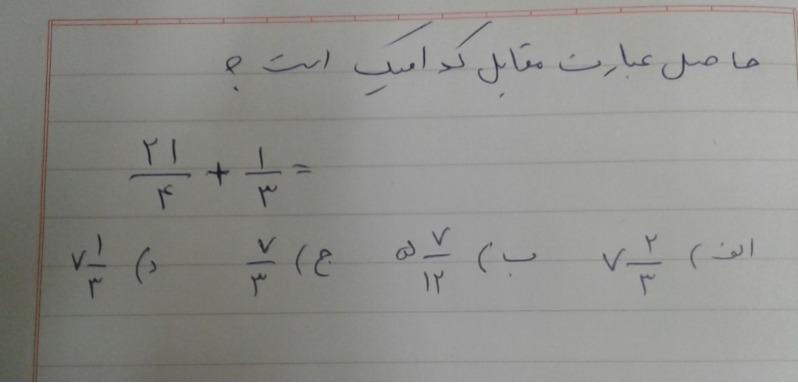 حاصل عبارت مقابل کدامیک است ؟
۲۱/۴ + ۱/۳ =
الف) ۷ ۲/۳ ب) ۵ ۷/۱۲ ج) ۷/۳ د) ۷ ۱/۳